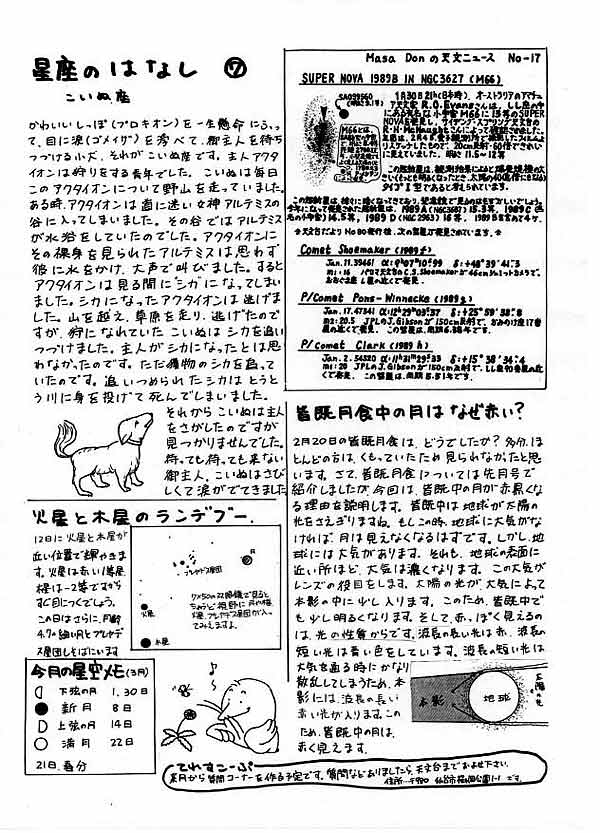 星座のはなし ⑦
こいぬ座
かわいいしっぽ(プロキオン)を一生懸命にふっ
て、目に涙(ゴメイザ)を秀べて、御主人を待ち
つづける小犬。それがこいぬ座です。主人アクタ
イオンは狩りをする青年でした。こいぬは毎日
このアクタイオンについて野山を走っていました。
ある時、アクタイオンは道に迷い女神アルテミスの
谷に入ってしまいました。その谷ではアルテミス
が水浴をしていたのでした。アクタイオンに
その裸身を見られたアルテミスは思わず
彼に水をかけ、大声で叫びました。すると
アクタイオンは見る間に"シカ"になってしまい
ました。シカになったアクタイオンは逃げま
した。山を越え、草原を走り、逃げたので
すが、狩になれていたこいぬはシカを追い
つづけました。主人がシカになったとは思
わなかったのです。ただ獲物のシカを追って
いたのです。追いつめられたシカはとうと
う川に身を投げて死んでしまいました。
それからこいぬは主人
をさがしたのですが
見つかりませんでした。
待っても、待っても来ない
御主人。こいぬはさび
しくて涙がでてきました
Masa Donの天文ニュース No-17
SUPER NOVA 1989B IN NGC3627 (M66)
SAO99560
1月30日21h(日本時)、オーストラリアのアマチュ
ア天文家R.O.Evansさんは、しし座の中
にある有名な小宇宙M66に15等のSUPER
NOVAを発見し、サイディング・スプリング天文台の
R.H.McNaughtさんによって確認されました。
タイプI型であると考えられています。
Comet Shoemaker (1989f)
Jan.11.39461 α:9h07m10s.99 δ:+48°39′41″.3
m1:16 パロマ天文台のC.S.Shoemakerが46cmシュミットカメラで、
P/Comet Pons-Winnecke (1989g)
Jan.17.47341 α:12h29m03s.37 δ:+25°59′38″.8
m2:20.5 JPLのJ.Gibsonが150cm反射で、かみのけ座17番
星の近くで発見。この彗星は、周期6.38年です。
P/Comet Clark (1989h)
Jan.2.54520 α:11h31m29s.33 δ:+15°38′34″.4
m1:20 JPLのJ.Gibsonが150cm反射で、しし座90番星の近
くで発見。この彗星は、周期5.51年です。
皆既月食中の月はなぜ赤い?
2月20日の皆既月食は、どうでしたか?多分、ほ
とんどの方は、くもっていたため見られなかったと思
います。さて、皆既月食については先月号で
紹介しましたが、今回は、皆既中の月が赤黒くな
る理由を説明します。皆既中は地球が太陽の
光をさえぎりますね。もしこの時、地球に大気がな
ければ、月は見えなくなるはずです。しかし、地
球には大気があります。それも、地球の表面に
近い所ほど、大気は濃くなります。この大気が
レンズの役目をします。太陽の光が大気によって
本影の中に少し入ります。このため、皆既中で
も少し明るくなります。そして、赤っぽく見えるの
は、光の性質からです。波長の長い光は赤、波長の
短い光は青い色をしています。波長の短い光は
大気を通る時にかなり
散乱してしまうため、本
影には、波長の長い
赤い光が入ります。この
ため、皆既中の月は、
赤く見えます。
本影
地球
太陽の光
火星と木星のランデブー
12日に火星と木星が
近い位置で輝やきま
す。火星は赤い1等星、
木星は-2等ですから
すぐ目につくでしょう。
この日はさらに、月齢
4.7の細い月とプレヤデ
ス星団もそばにいます
プレヤデス星団
月
火星
木星
7×50の双眼鏡で見ると
ちょうど視野に月や木
星、火星、プレヤデス星団が入っ
てみえますよ。
今月の星空メモ(3月)
下弦の月 1、30日
新月 8日
上弦の月 14日
満月 22日
21日.春分
てれすこーぷ
来月から質問コーナーを作る予定です。質問などありましたら、天文台までお寄せ下さい。
住所…〒980 仙台市桜ヶ岡公園1-1 です。